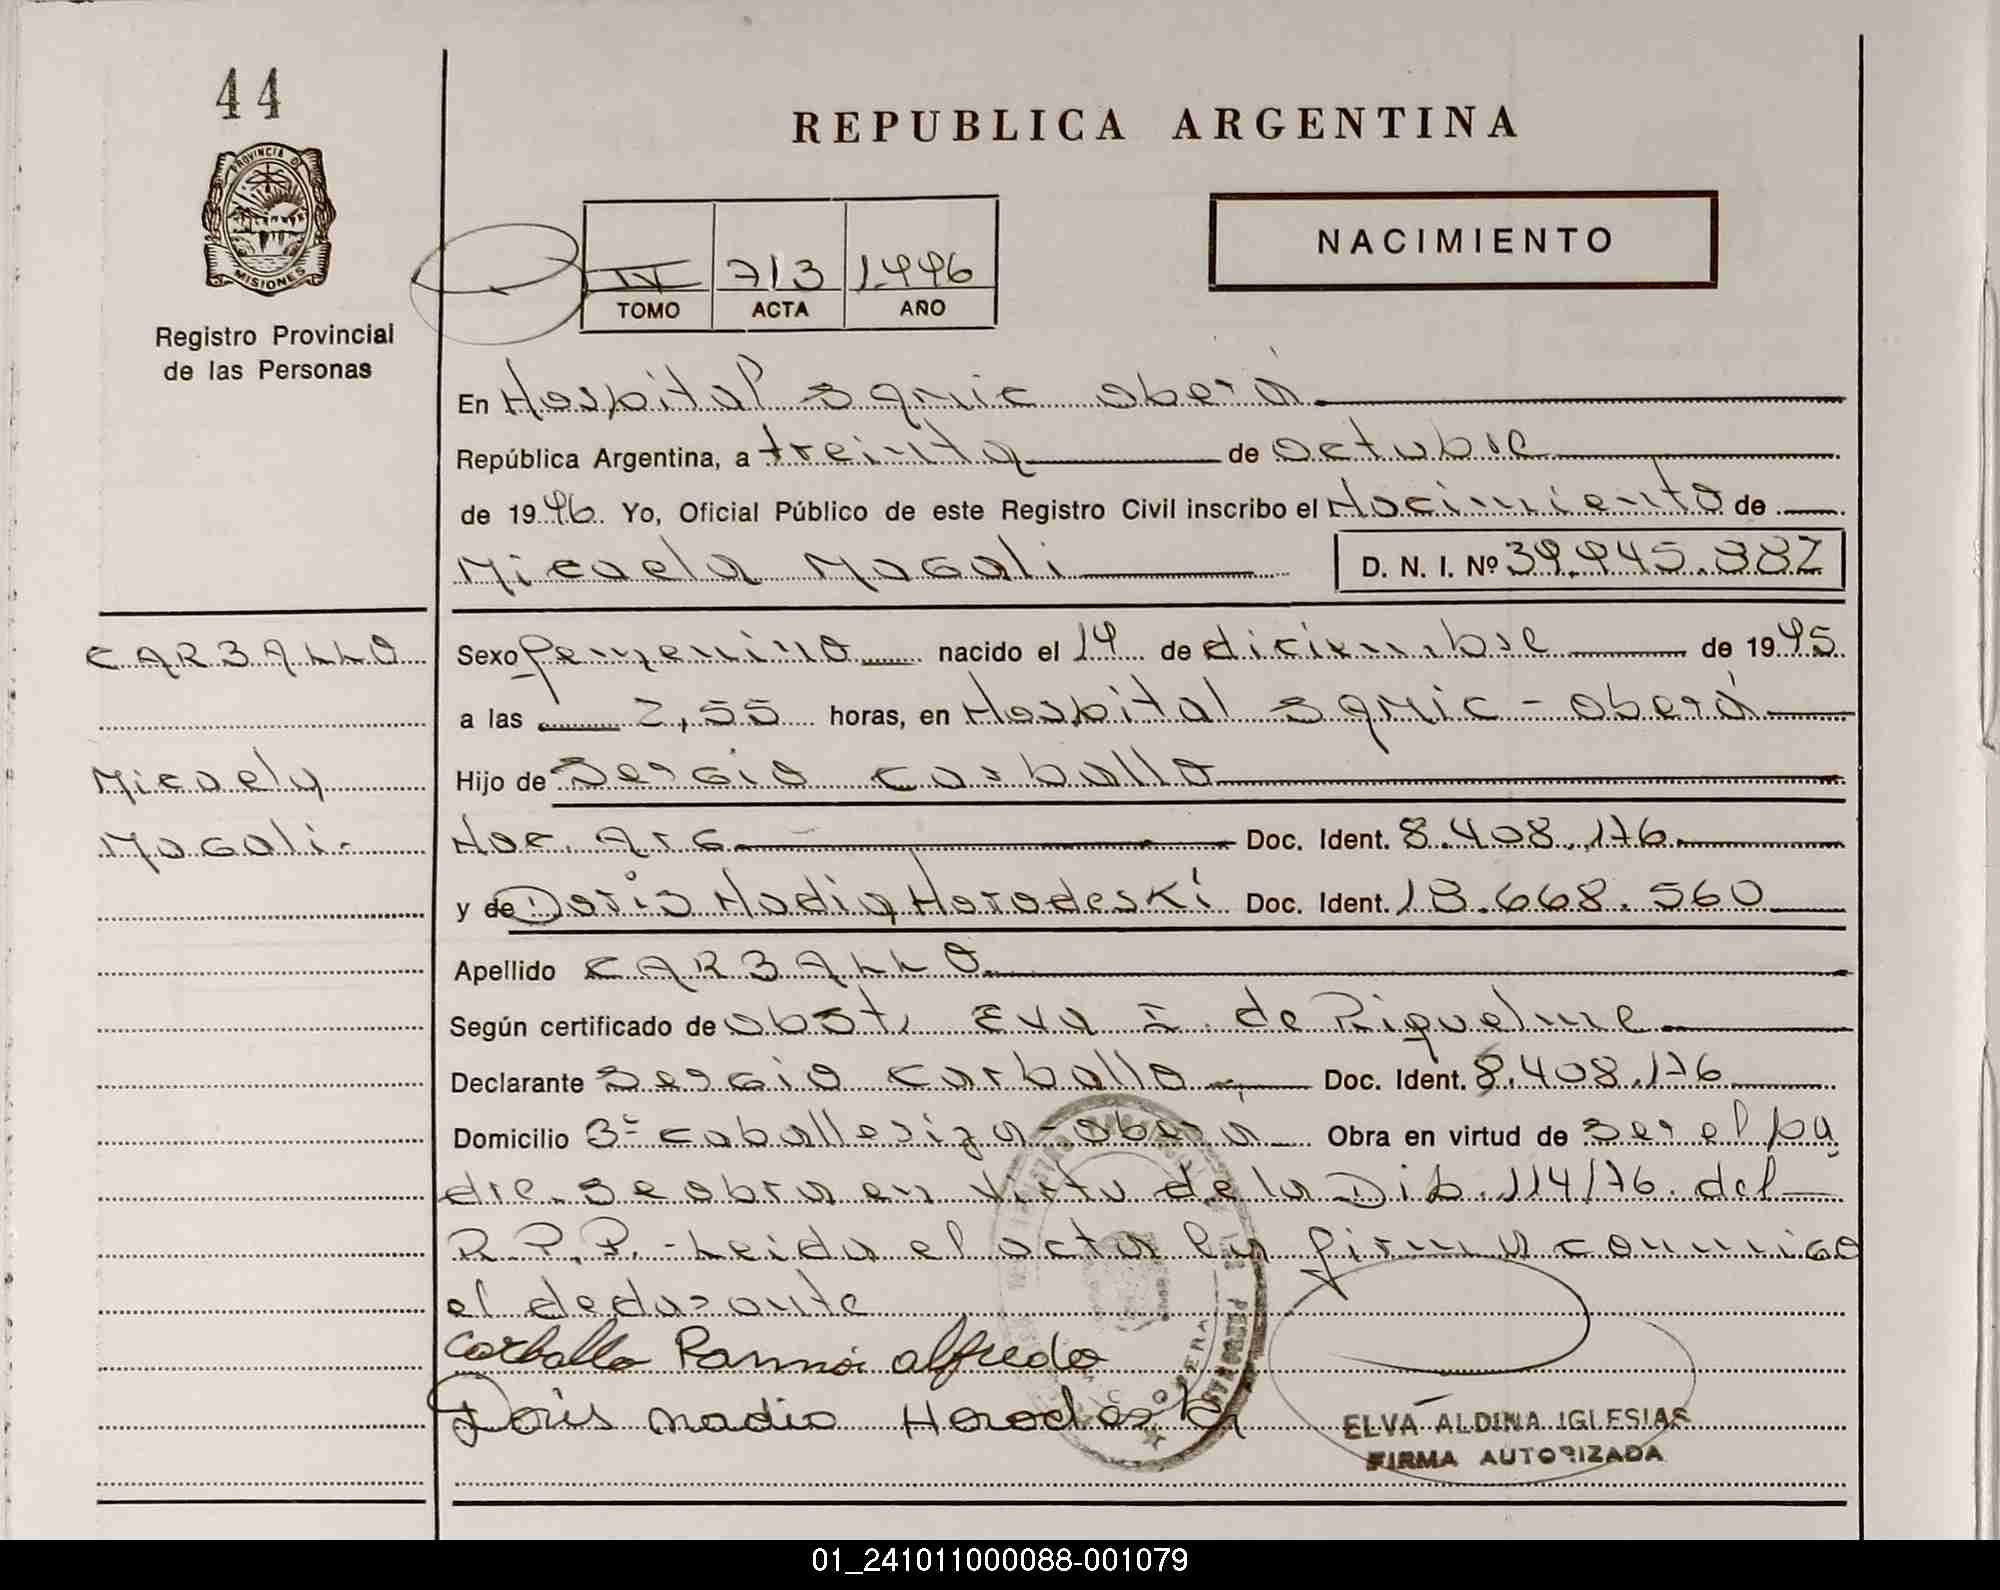 44
REPUBLICA ARGENTINA
PROVINCIA DE
MISIONES
Registro Provincial
de las Personas
IV 713 1996
TOMO ACTA AÑO
NACIMIENTO
En Hospital Samic oberá
República Argentina, a treinta de octubre
de 1996. Yo, Oficial Público de este Registro Civil inscribo el Nacimiento de
Micaela Magali D. N. I. Nº 39.945.382
CARBALLO
Sexo femenino nacido el 19 de diciembre de 1995
a las 2,55 horas, en Hospital Samic - oberá
Micaela
Hijo de Sergio Carballo
Magali.-
Nac. Arg Doc. Ident. 8.408.176
y de Doris Nadia Horodeski Doc. Ident. 18.668.560
Apellido CARBALLO
Según certificado de obst. Eva I. de Riquelme
Declarante Sergio Carballo Doc. Ident. 8.408.176
Domicilio 3º caballeriza - oberá Obra en virtud de ser el pa
dre. Se obra en virtu de la Dib. 114/76. del
R.P.P.- Leida el acta la firma conmigo
el declarante
Carballo Ramón alfredo
Doris nadia Horodeski
ELVA ALDINA IGLESIAS
FIRMA AUTORIZADA
01_241011000088-001079